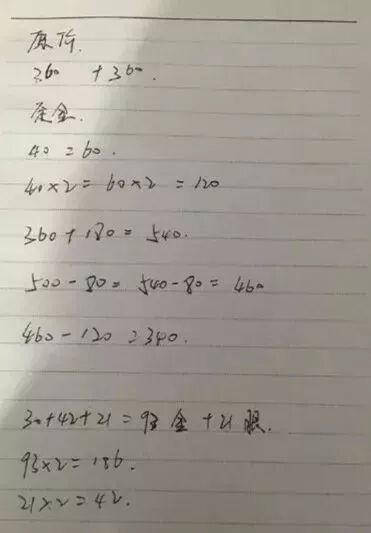 原价.
360 +360.
定金.
40 = 60.
40×2= 60×2 = 120
360+180= 540.
500-80= 540-80= 460
460-120=340.
30+42+21=93 金 +21 银.
93×2=186.
21×2=42.